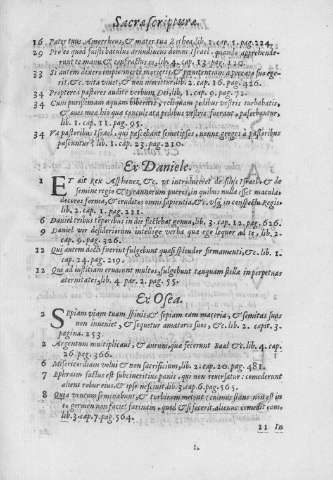 Sacra scriptura.
16 Pater tuus Amorrhæus, & mater tua Cethea, lib. 2. cap. 1. pag. 224.
29 Pro eo quod fuisti baculus arundineus domui Israel: quando apprehende-
runt te manu & confractus es, lib. 4. cap. 13. pag. 110.
33 Si autem dixero impio morte morieris & pœnitentiam à peccato suo ege-
rit, &c. vita viuet, & non morietur, lib. pag. 426.
34 Propterea pastores audite verbum Dei, lib. 1. cap. 9. pag.
34 Cum purissimam aquam biberitis, reliquam pedibus vestris turbabatis,
& oues meæ his quæ conculcata pedibus vestris fuerant, pascebantur,
lib. 1. cap. 11. pag. 95.
34 Væ pastoribus Israel, qui pascebant semetipsos, nonne greges à pastoribus
pascuntur? lib. 1. cap. 23. pag. 210.
Ex Daniele.
1 ET ait rex Asphenez, &c. vt introduceret de filiis Israel, & de
semine regio & tyrannorum pueros, in quibus nulla esset macula,
decores forma, & eruditos omni sapientia, &c. vsq; in conspectu Regis
lib. 2. cap. 1. pag. 211.
6 Daniel tribus temporibus in die flectebat genua, lib. 3. cap. 12. pag. 626.
9 Daniel vir desideriorum intellige verba quæ ego loquor ad te, lib. 2.
cap. 9. pag. 326.
12 Qui autem docti fuerint fulgebunt quasi splendor firmamenti, &c. lib. 1.
cap. 24. pag. 219.
12 Qui ad iustitiam erudiunt multos, fulgebunt tanquam stellæ in perpetuas
æternitates, lib. 4. par. 2. pag. 55.
Ex Osea.
2 SEpiam viam tuam spinis & sepiam eam maceria, & semitas suas
non inueniet, & sequetur amatores suos, &c. lib. 2. cap. 3.
pagina 253.
2 Argentum multiplicaui, & aurum, quæ fecerunt Baal &c. lib. 4. cap.
26. pag. 366.
6 Misericordiam volui & non sacrificium, lib. 2. cap. 20. pag. 481.
7 Ephraim factus est subcinericius panis, qui non reuersatur: comederunt
alieni robur eius, & ipse nesciuit lib. 3. cap. 6. pag. 565.
8 Quia ventum seminabunt, & turbinem metent: culmus stans non est in
eo germen non faciet farinam, quod & si fecerit, alieni comedent eam,
lib. 3. cap. 7. pag. 564.
11 In